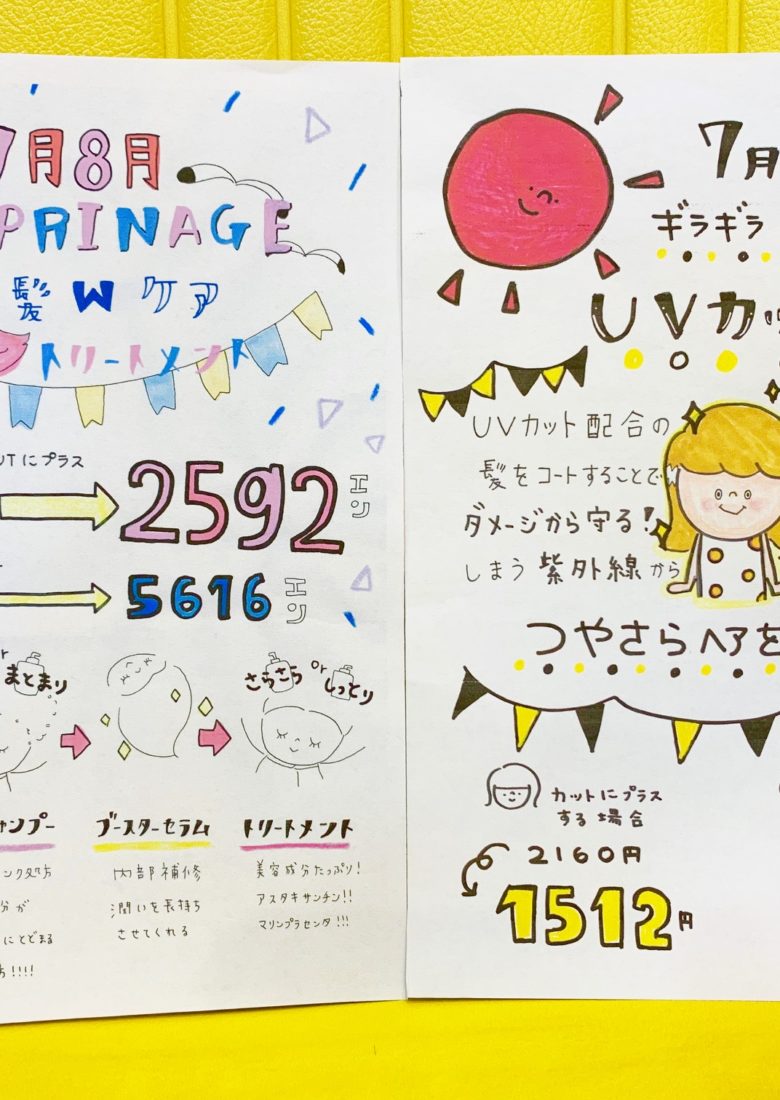 7月8月
PRINAGE
髪Wケア
トリートメント
UTにプラス
2592エン
5616エン
or
まとまり
さらさら
or
しっとり
ャンプー
ンク処方
分が
にとどまる
!!!!
ブースターセラム
内部補修
潤いを長持ち
させてくれる
トリートメント
美容成分たっぷり!
アスタキサンチン!!
マリンプラセンタ!!!
7月
ギラギラ
UVカッ
UVカット配合の
髪をコートすることで
ダメージから守る!
しまう紫外線から
つやさらヘアを
カットにプラス
する場合
2160円
1512円